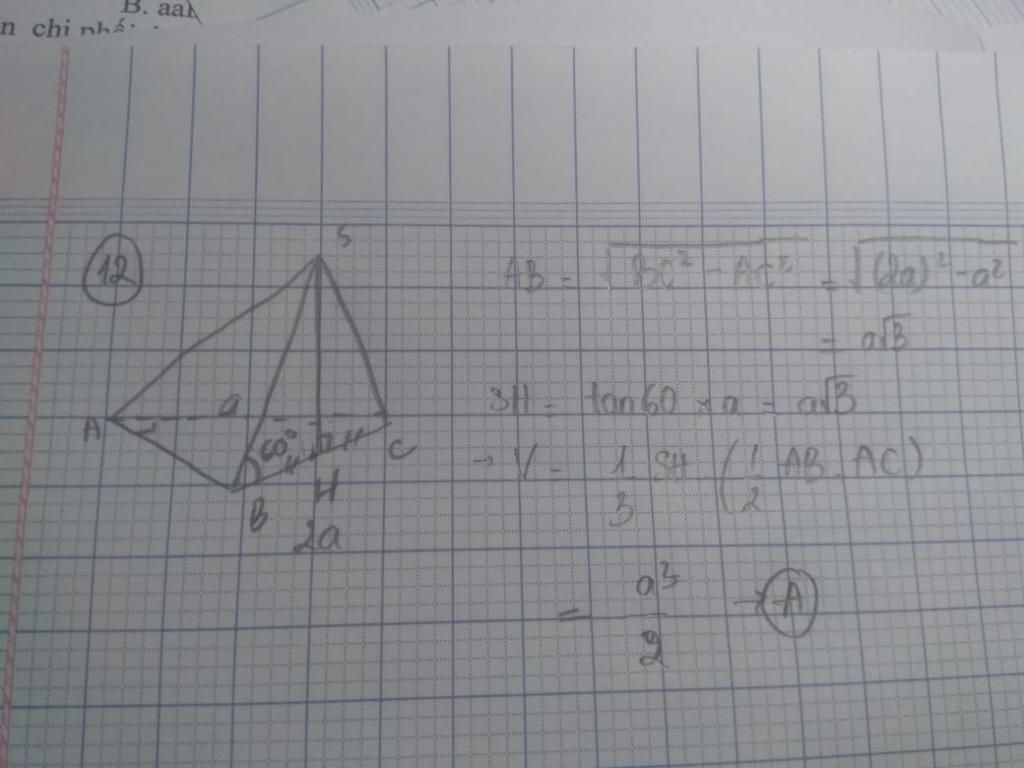 B. aaB
n chi phối
12
S
A
a
60°
B
H
C
2a
AB = √BC² - AC² = √(2a)² - a²
= a√3
SH = tan60 × a = a√3
→ V = 1/3 SH (1/2 AB. AC)
= a³/2 → A